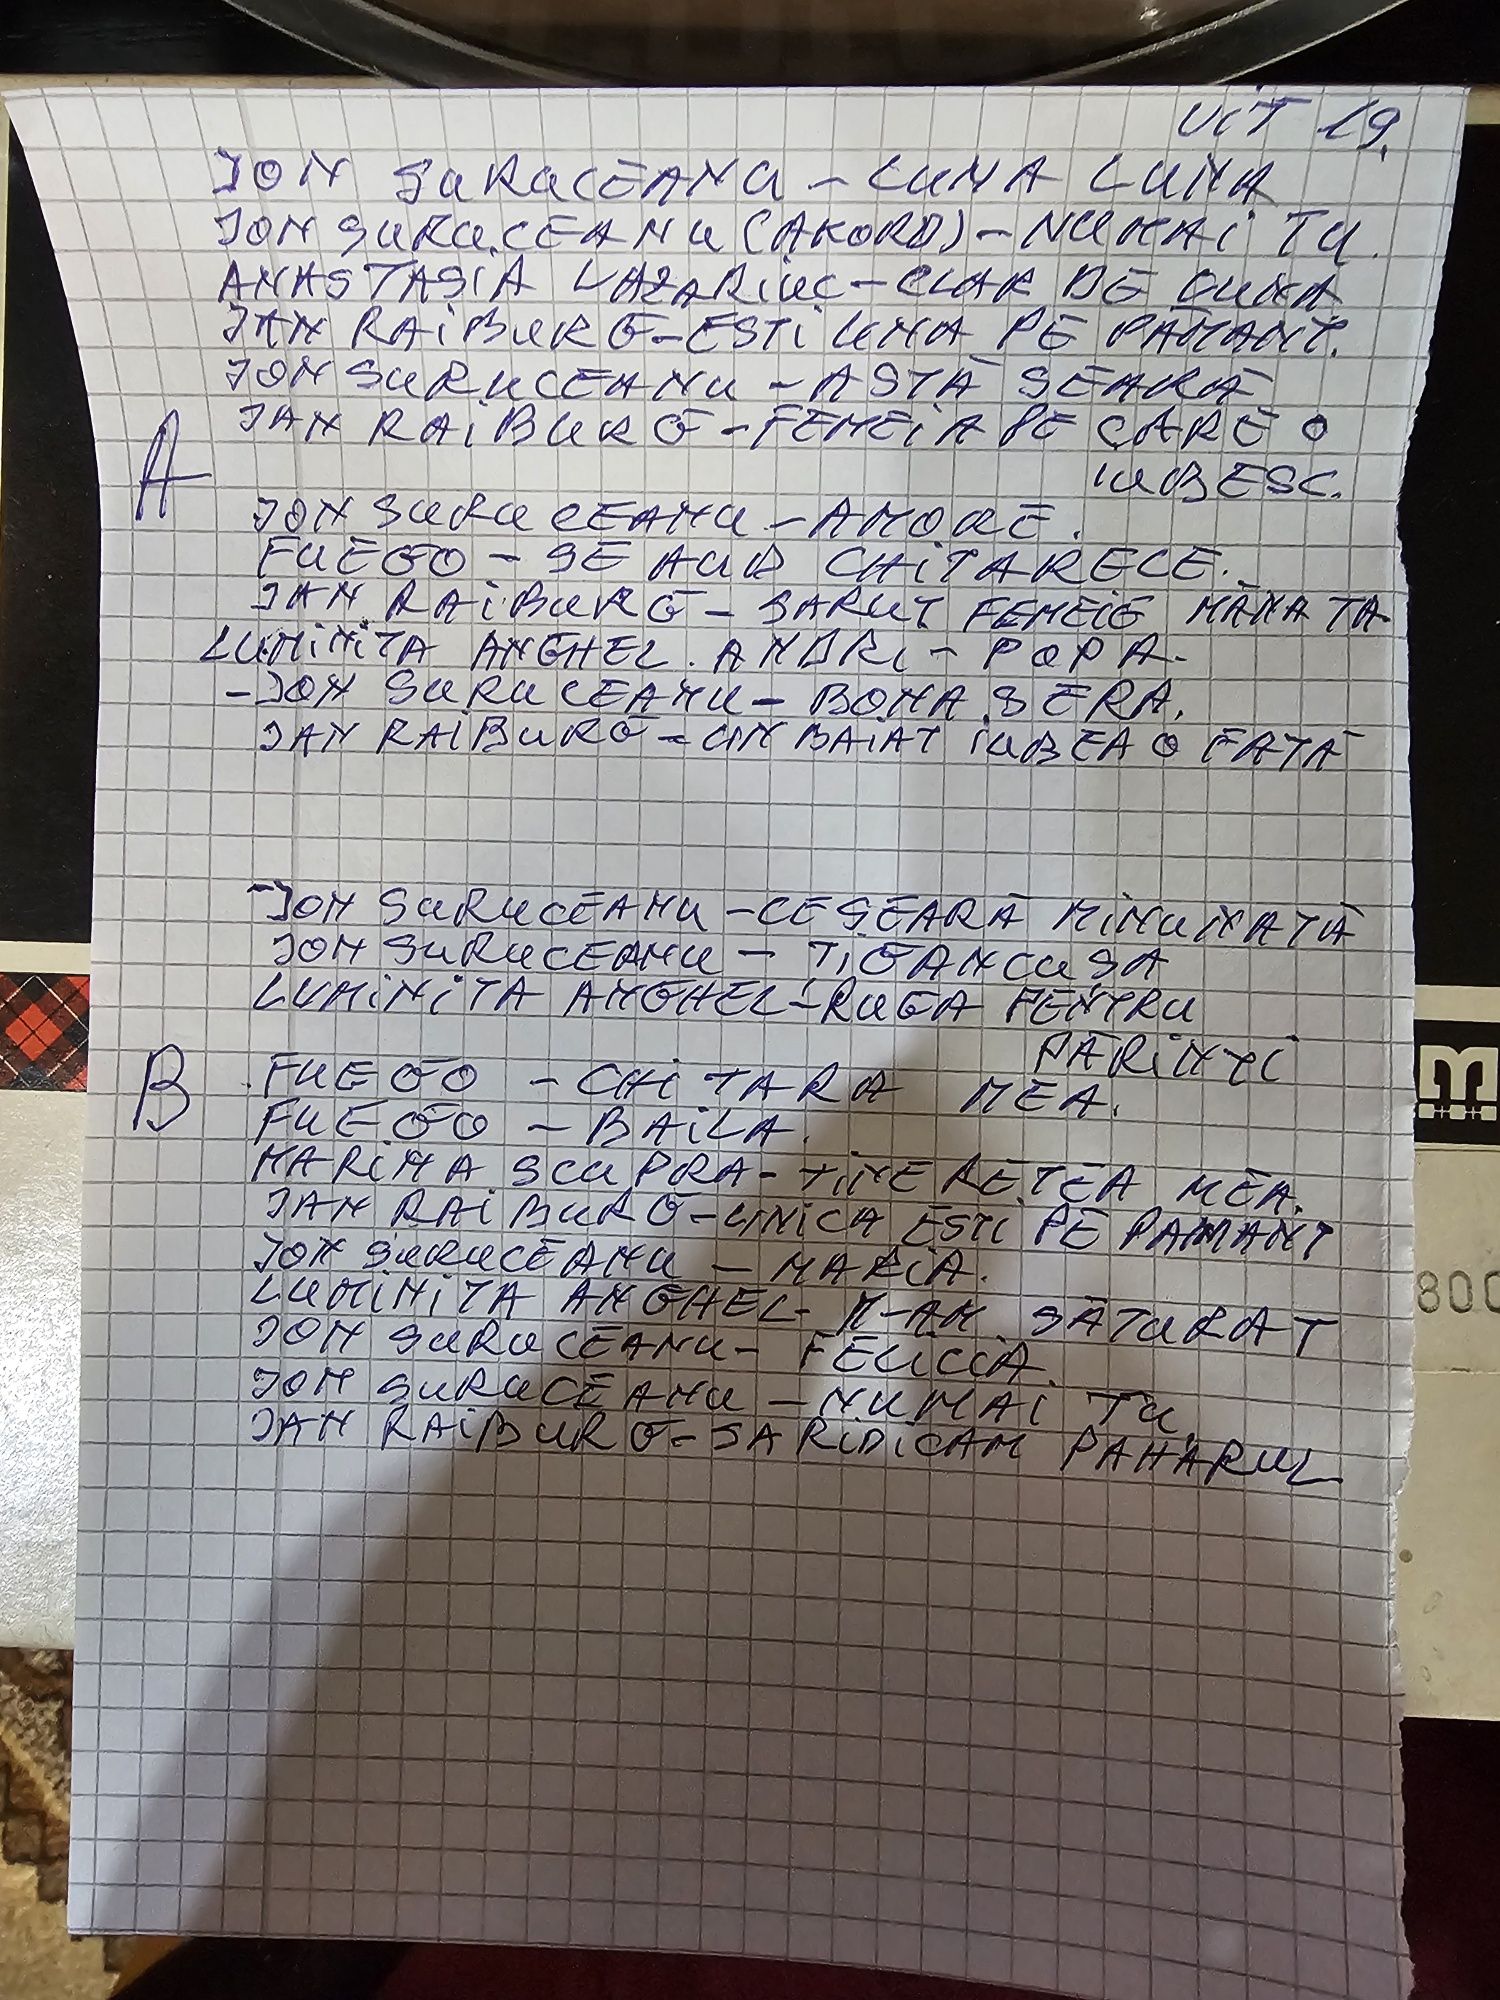 VIT 19.
ION SURUCEANU - LUNA LUNA
ION SURUCEANU (AKORD) - NUMAI TU.
ANASTASIA LAZARIUC - CLAR DE LUNA
IAN RAIBURG - ESTI LUNA PE PAMANT.
ION SURUCEANU - ASTĂ SEARĂ
IAN RAIBURG - FEMEIA PE CARE O
IUBESC.
A
ION SURUCEANU - AMORE.
FUEGO - SE AUD CHITARECE.
IAN RAIBURG - SARUT FEMEIE MÂNA TA
LUMINITA ANGHEL. ANDRI - POPA.
- ION SURUCEANU - BONA SERA.
IAN RAIBURG - UN BAIAT IUBEA O FATĂ
- ION SURUCEANU - CE SEARĂ MINUNATĂ
ION SURUCEANU - ȚIGANCUSA
LUMINITA ANGHEL - RUGA PENTRU
PĂRINȚI
B
FUEGO - CHITARA MEA.
FUEGO - BAILA.
MARINA SCUPRA - TINEREȚEA MEA.
IAN RAIBURG - UNICA ESTI PE PAMANT
ION SURUCEANU - MARIA.
LUMINITA ANGHEL - M-AM SĂTURAT
ION SURUCEANU - FELICIA.
ION SURUCEANU - NUMAI TU.
IAN RAIBURG - SA RIDICAM PAHARUL
800